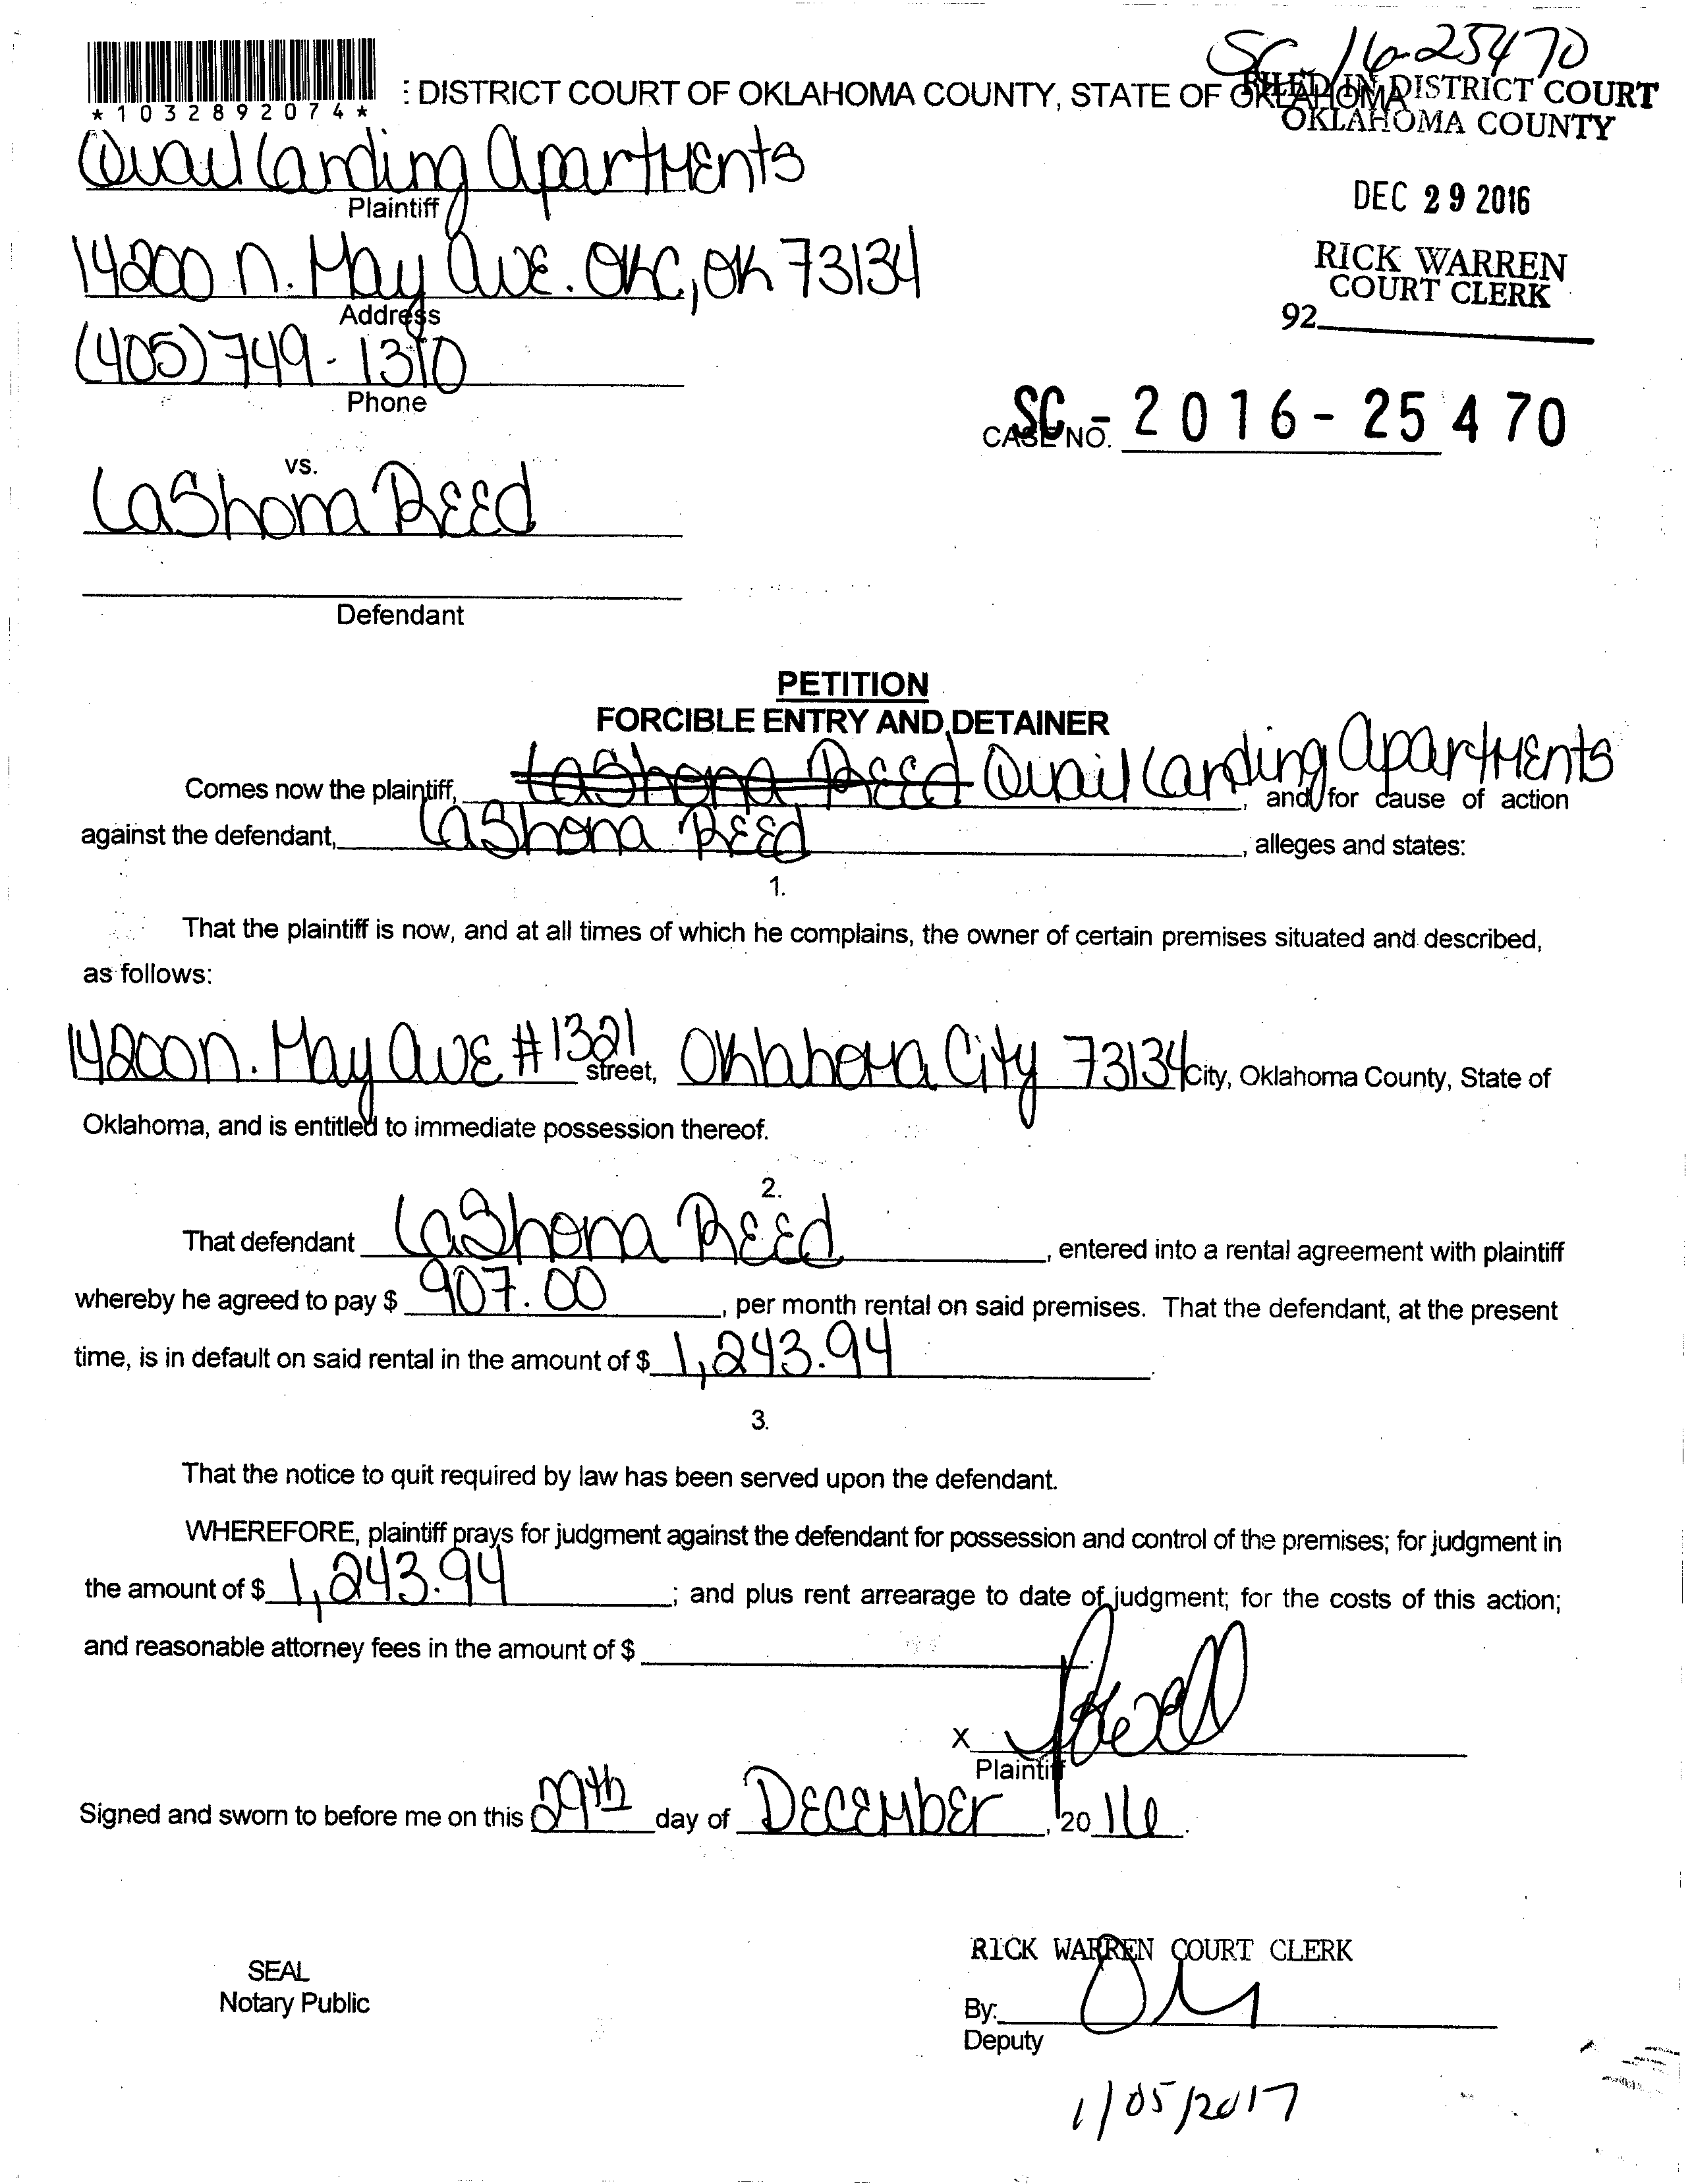 SC 16-25470
*1032892074*
: DISTRICT COURT OF OKLAHOMA COUNTY, STATE OF OKLAHOMA
FILED IN DISTRICT COURT
OKLAHOMA COUNTY
Quail Landing ApartMents
Plaintiff
DEC 29 2016
14200 N. May Ave. OKC, OK 73134
Address
RICK WARREN
COURT CLERK
92
(405) 749-1310
Phone
CASE NO. SC - 2016-25470
vs.
LaShona Reed
Defendant
PETITION
FORCIBLE ENTRY AND DETAINER
Comes now the plaintiff, LaShona Reed Quail Landing ApartMents, and for cause of action
against the defendant, LaShona Reed, alleges and states:
1.
That the plaintiff is now, and at all times of which he complains, the owner of certain premises situated and described,
as follows:
14200 N. May Ave #1321 street, OklahoMa City 73134 City, Oklahoma County, State of
Oklahoma, and is entitled to immediate possession thereof.
2.
That defendant LaShona Reed, entered into a rental agreement with plaintiff
whereby he agreed to pay $ 907.00, per month rental on said premises. That the defendant, at the present
time, is in default on said rental in the amount of $ 1,243.94.
3.
That the notice to quit required by law has been served upon the defendant.
WHEREFORE, plaintiff prays for judgment against the defendant for possession and control of the premises; for judgment in
the amount of $ 1,243.94; and plus rent arrearage to date of judgment; for the costs of this action;
and reasonable attorney fees in the amount of $
X
Plaintiff
Signed and sworn to before me on this 29th day of DeceMber, 2016.
RICK WARREN COURT CLERK
SEAL
Notary Public
By:
Deputy
1/05/2017